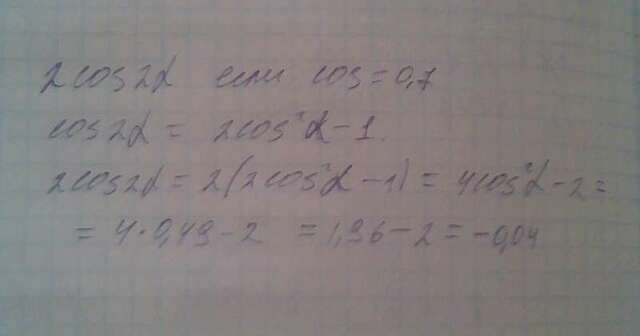 2cos2α если cos=0,7
cos2α = 2cos²α-1.
2cos2α = 2(2cos²α-1) = 4cos²α-2=
= 4·0,49-2 =1,96-2=-0,04